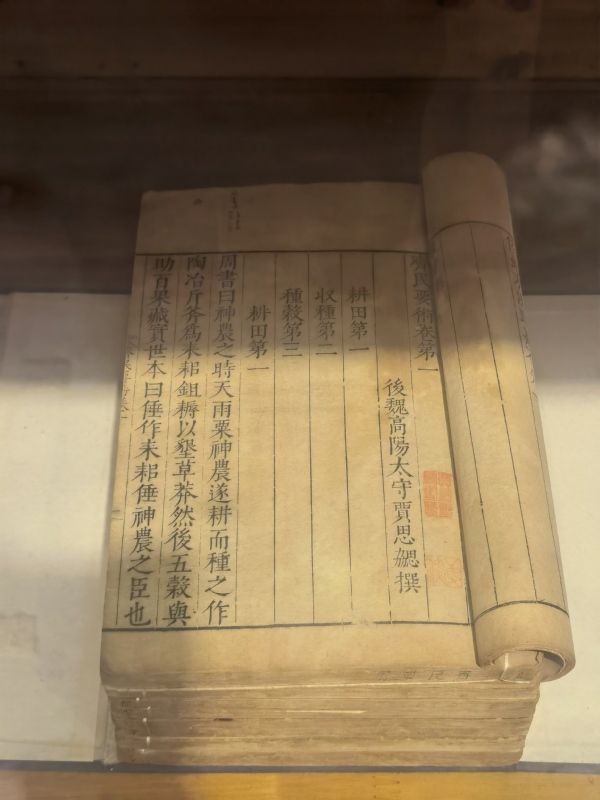 齊民要術卷第一
後魏高陽太守賈思勰撰
耕田第一
収種第二
種穀第三
耕田第一
周書曰神農之時天雨粟神農遂耕而種之作
陶冶斤斧為耒耜鉏耨以墾草莽然後五穀與
助百果藏實世本曰倕作耒耜倕神農之臣也